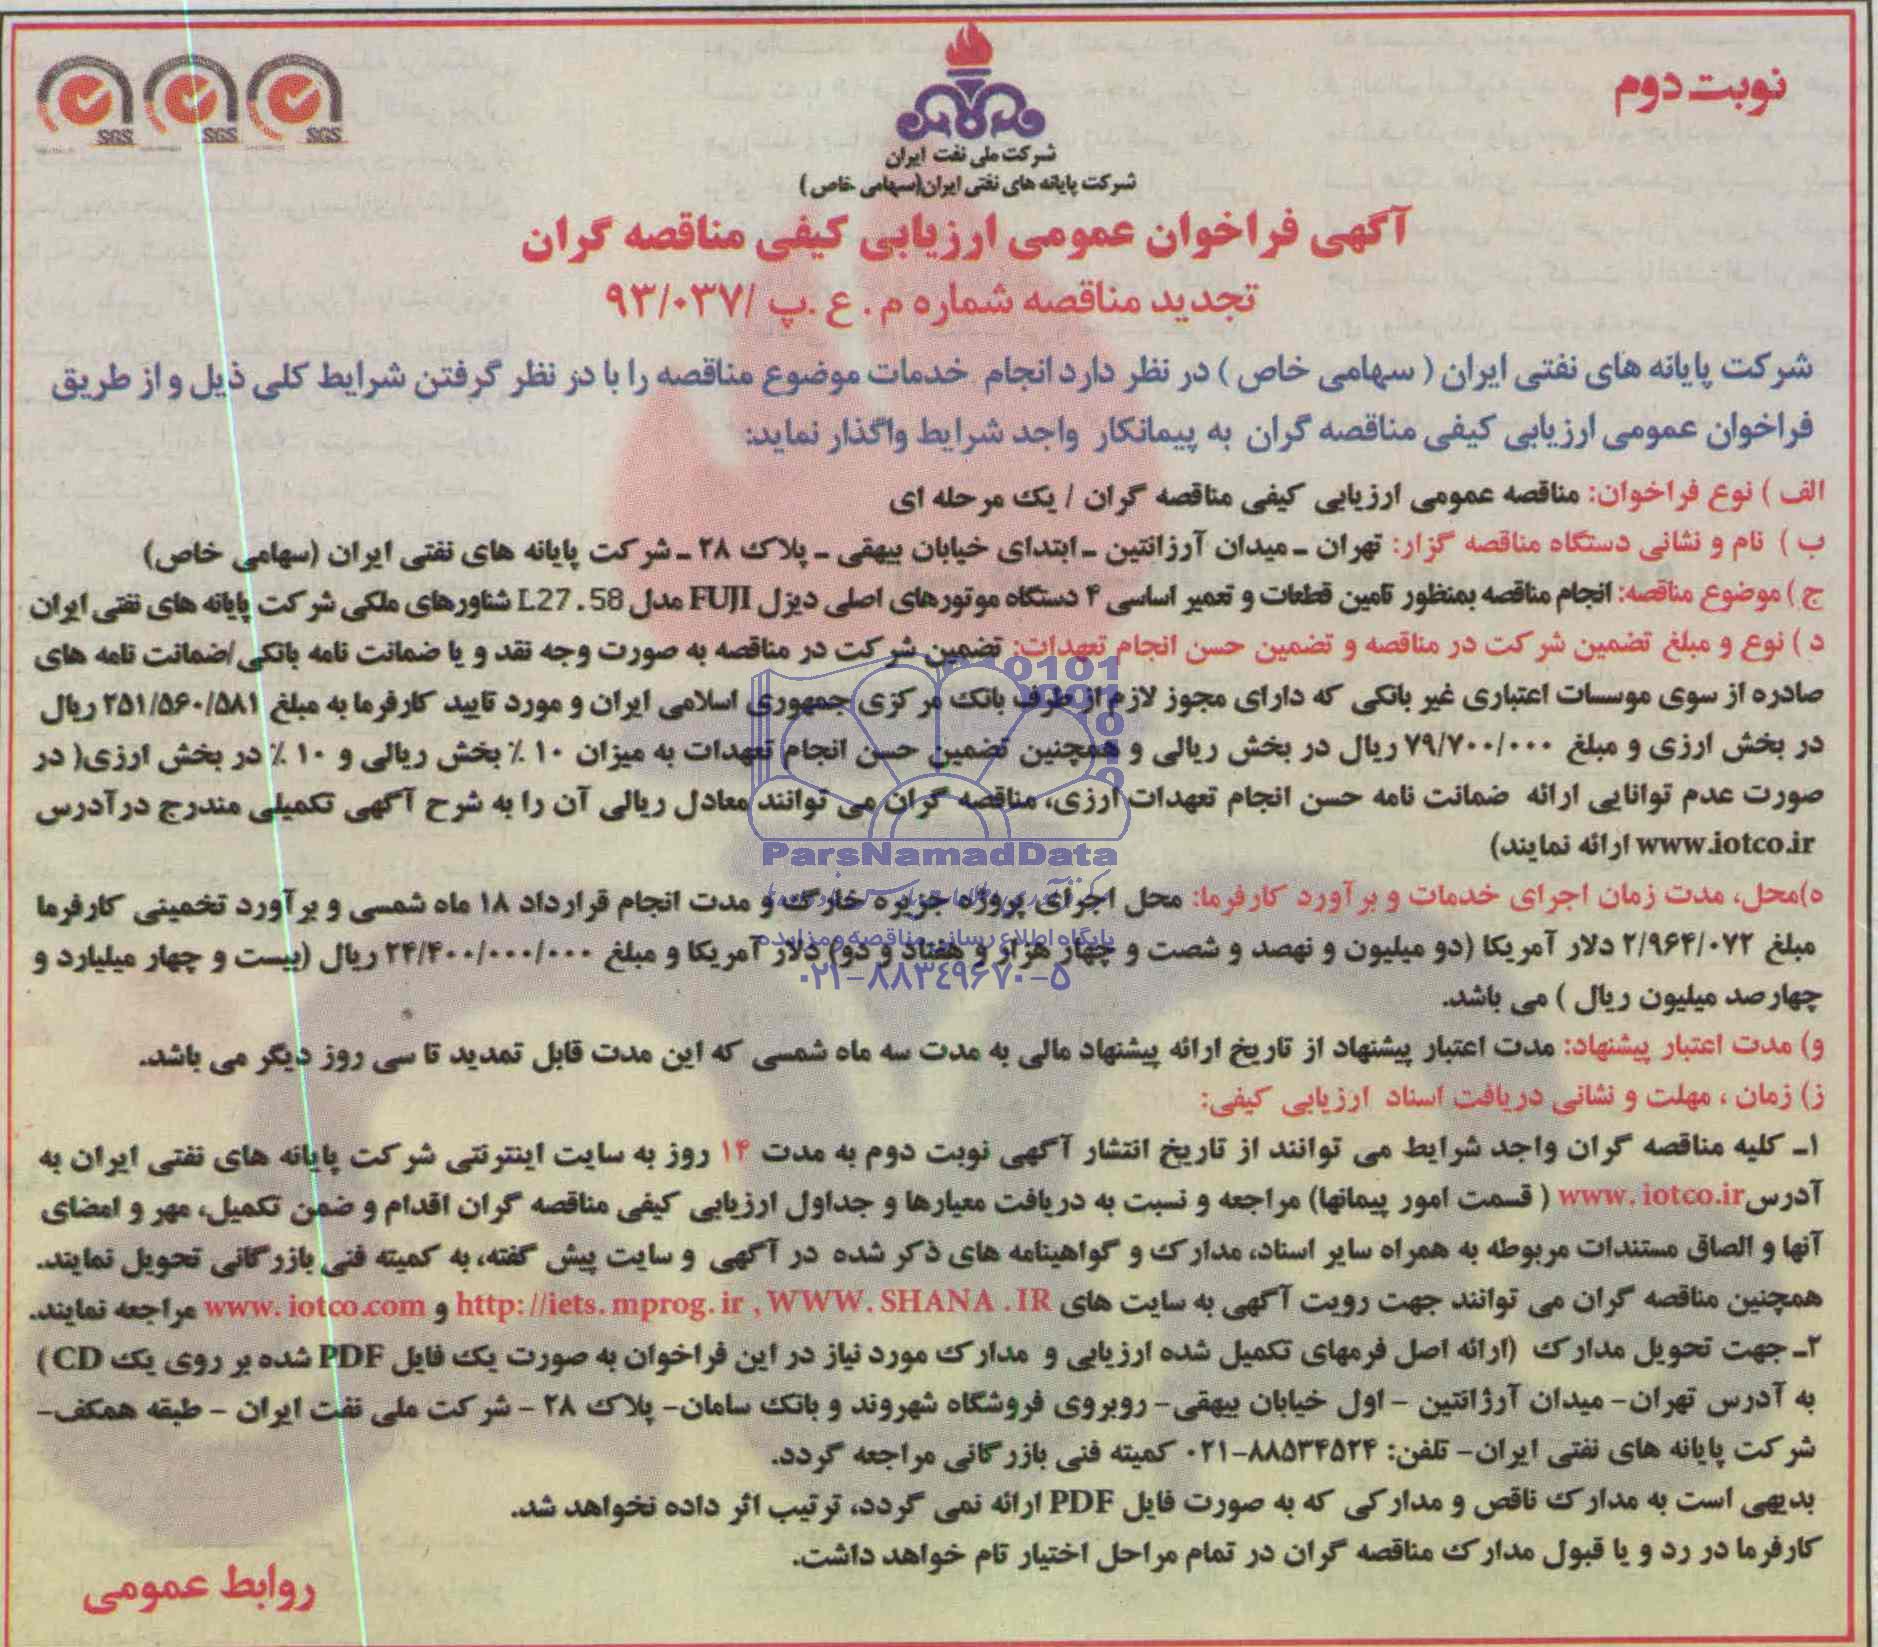 نوبت دوم
SGS SGS SGS
شرکت ملی نفت ایران
شرکت پایانه های نفتی ایران(سهامی خاص)
آگهی فراخوان عمومی ارزیابی کیفی مناقصه گران
تجدید مناقصه شماره م. ع .پ /۹۳/۰۳۷
شرکت پایانه های نفتی ایران ( سهامی خاص ) در نظر دارد انجام خدمات موضوع مناقصه را با در نظر گرفتن شرایط کلی ذیل و از طریق
فراخوان عمومی ارزیابی کیفی مناقصه گران به پیمانکار واجد شرایط واگذار نماید:
الف ) نوع فراخوان: مناقصه عمومی ارزیابی کیفی مناقصه گران / یک مرحله ای
ب ) نام و نشانی دستگاه مناقصه گزار: تهران ـ میدان آرژانتین ـ ابتدای خیابان بیهقی ـ پلاک ۲۸ ـ شرکت پایانه های نفتی ایران (سهامی خاص)
ج ) موضوع مناقصه: انجام مناقصه بمنظور تامین قطعات و تعمیر اساسی ۴ دستگاه موتورهای اصلی دیزل FUJI مدل L27.58 شناورهای ملکی شرکت پایانه های نفتی ایران
د ) نوع و مبلغ تضمین شرکت در مناقصه و تضمین حسن انجام تعهدات: تضمین شرکت در مناقصه به صورت وجه نقد و یا ضمانت نامه بانکی/ضمانت نامه های
صادره از سوی موسسات اعتباری غیر بانکی که دارای مجوز لازم از طرف بانک مرکزی جمهوری اسلامی ایران و مورد تایید کارفرما به مبلغ ۲۵۱/۵۶۰/۵۸۱ ریال
در بخش ارزی و مبلغ ۷۹/۷۰۰/۰۰۰ ریال در بخش ریالی و همچنین تضمین حسن انجام تعهدات به میزان ۱۰ ٪ بخش ریالی و ۱۰ ٪ در بخش ارزی( در
صورت عدم توانایی ارائه ضمانت نامه حسن انجام تعهدات ارزی، مناقصه گران می توانند معادل ریالی آن را به شرح آگهی تکمیلی مندرج درآدرس
www.iotco.ir ارائه نمایند)
ه)محل، مدت زمان اجرای خدمات و برآورد کارفرما: محل اجرای پروژه جزیره خارگ و مدت انجام قرارداد ۱۸ ماه شمسی و برآورد تخمینی کارفرما
مبلغ ۲/۹۶۴/۰۷۲ دلار آمریکا (دو میلیون و نهصد و شصت و چهار هزار و هفتاد و دو) دلار آمریکا و مبلغ ۲۴/۴۰۰/۰۰۰/۰۰۰ ریال (بیست و چهار میلیارد و
چهارصد میلیون ریال ) می باشد.
و) مدت اعتبار پیشنهاد: مدت اعتبار پیشنهاد از تاریخ ارائه پیشنهاد مالی به مدت سه ماه شمسی که این مدت قابل تمدید تا سی روز دیگر می باشد.
ز) زمان ، مهلت و نشانی دریافت اسناد ارزیابی کیفی:
۱ـ کلیه مناقصه گران واجد شرایط می توانند از تاریخ انتشار آگهی نوبت دوم به مدت ۱۴ روز به سایت اینترنتی شرکت پایانه های نفتی ایران به
آدرس www.iotco.ir ( قسمت امور پیمانها) مراجعه و نسبت به دریافت معیارها و جداول ارزیابی کیفی مناقصه گران اقدام و ضمن تکمیل، مهر و امضای
آنها و الصاق مستندات مربوطه به همراه سایر اسناد، مدارک و گواهینامه های ذکر شده در آگهی و سایت پیش گفته، به کمیته فنی بازرگانی تحویل نمایند.
همچنین مناقصه گران می توانند جهت رویت آگهی به سایت های http://iets.mprog.ir , WWW.SHANA.IR و www.iotco.com مراجعه نمایند.
۲ـ جهت تحویل مدارک (ارائه اصل فرمهای تکمیل شده ارزیابی و مدارک مورد نیاز در این فراخوان به صورت یک فایل PDF شده بر روی یک CD )
به آدرس تهران- میدان آرژانتین - اول خیابان بیهقی- روبروی فروشگاه شهروند و بانک سامان- پلاک ۲۸ - شرکت ملی نفت ایران - طبقه همکف-
شرکت پایانه های نفتی ایران- تلفن: ۸۸۵۳۴۵۲۴-۰۲۱ کمیته فنی بازرگانی مراجعه گردد.
بدیهی است به مدارک ناقص و مدارکی که به صورت فایل PDF ارائه نمی گردد، ترتیب اثر داده نخواهد شد.
کارفرما در رد و یا قبول مدارک مناقصه گران در تمام مراحل اختیار تام خواهد داشت.
روابط عمومی
ParsNamadData
پایگاه اطلاع رسانی مناقصه و مزایده
۰۲۱-۸۸۳۴۹۶۷۰-۵